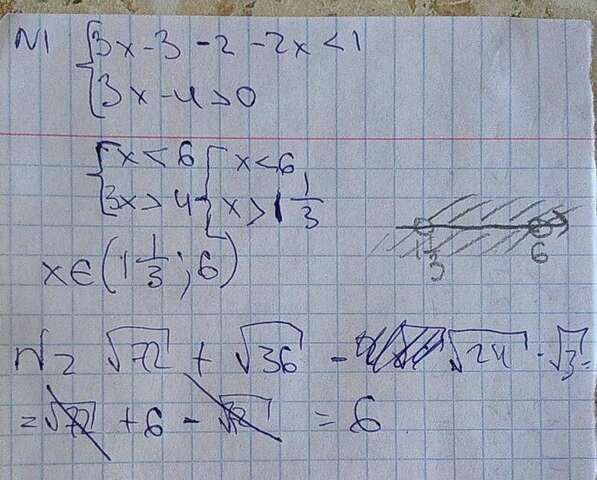 N1 { 3x - 3 - 2 - 2x < 1
3x - 4 > 0
{ x < 6 { x < 6
3x > 4 x > 1 1/3
1 1/3 6
x ∈ (1 1/3 ; 6)
N2 √72 + √36 - √24 · √3 =
= √72 + 6 - √72 = 6